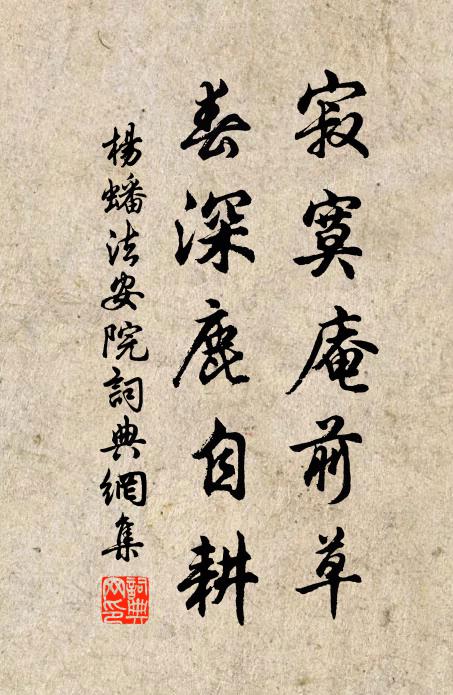 寂寞庵前草
春深鹿自耕
楊蟠法安院詞典網集
詞典網印